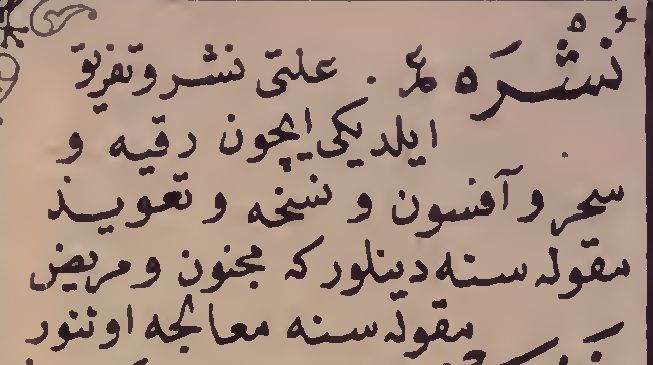 نُشْرَه ع. علتی نشر و تفریق
ایلدیکی ایچون رقیه و
سحر و آفسون و نسخه و تعویذ
مقوله سنه دینلور که مجنون و مریض
مقوله سنه معالجه اوننور